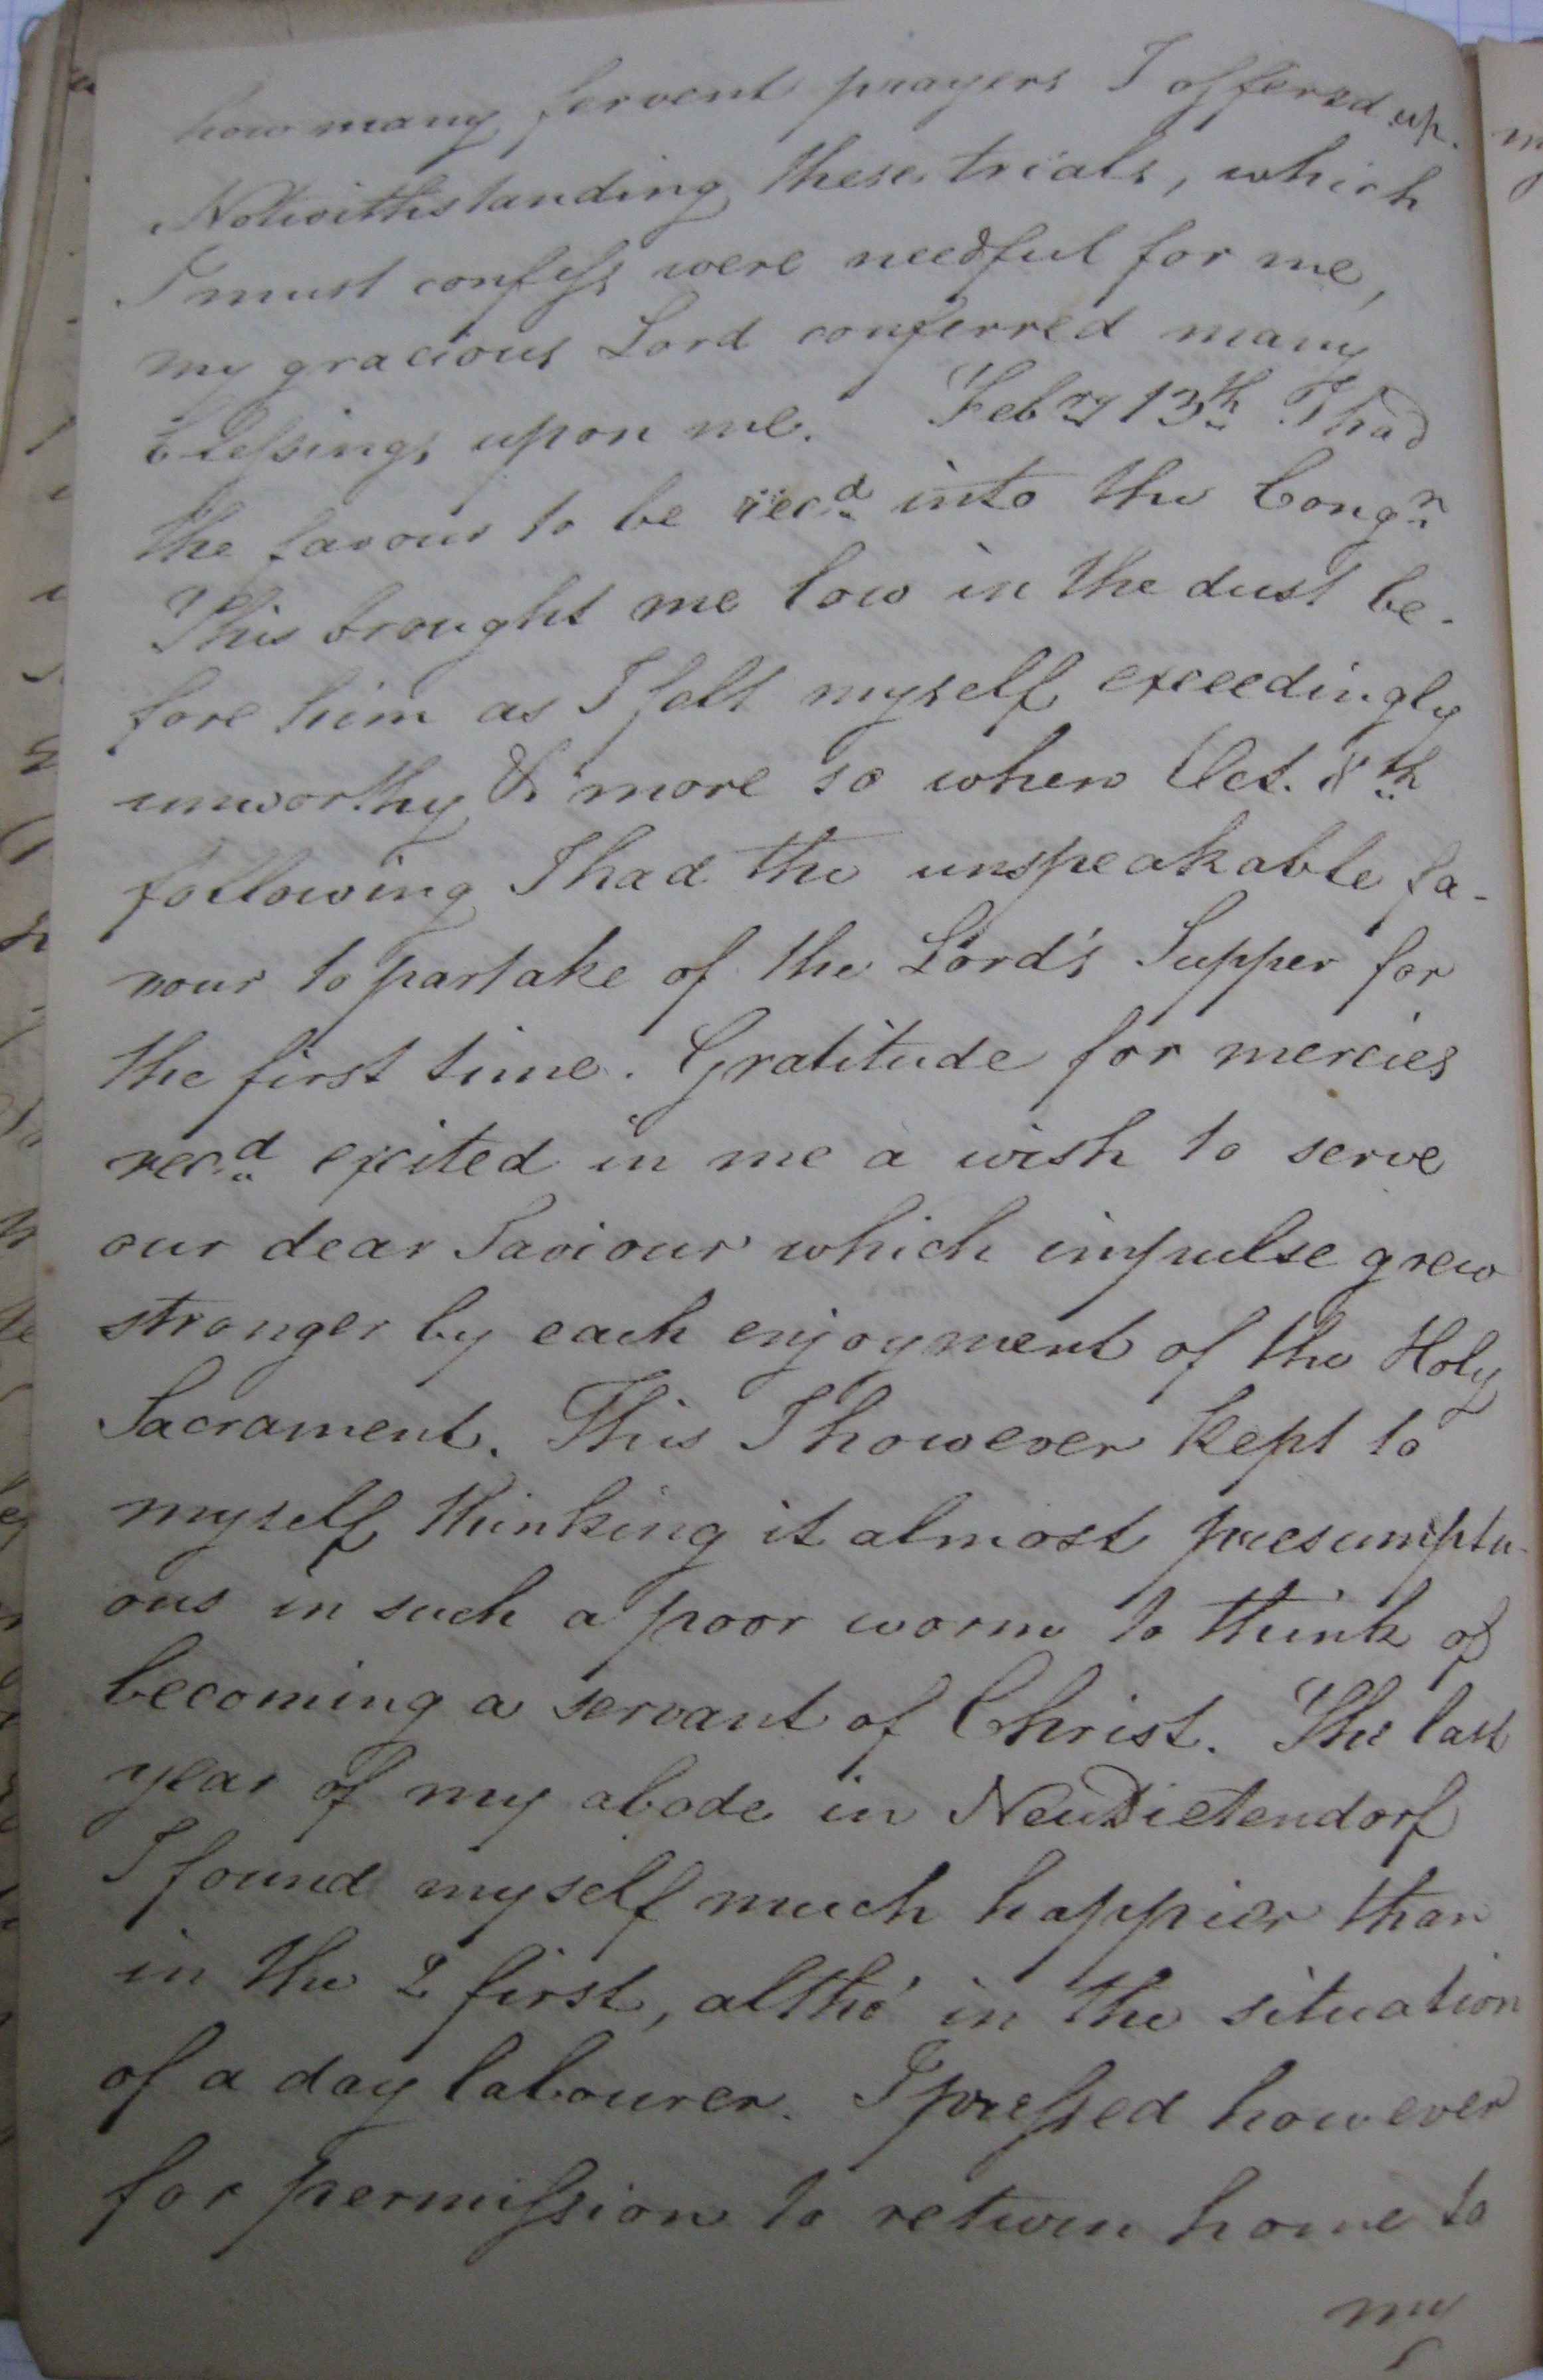 how many fervent prayers I offered up.
Notwithstanding these trials, which
I must confess were needful for me,
my gracious Lord conferred many
blessings upon me. Febry 13th I had
the favour to be recd into the Congn
This brought me low in the dust be-
fore him as I felt myself exceedingly
unworthy & more so when Oct. 8th
following I had the unspeakable fa-
vour to partake of the Lord's Supper for
the first time. Gratitude for mercies
recd excited in me a wish to serve
our dear Saviour which impulse grew
stronger by each enjoyment of the Holy
Sacrament. This I however kept to
myself thinking it almost presumptu-
ous in such a poor worm to think of
becoming a servant of Christ. The last
year of my abode in NeuDietendorf
I found myself much happier than
in the 2 first, altho' in the situation
of a day labourer. I pressed however
for permission to return home to
my